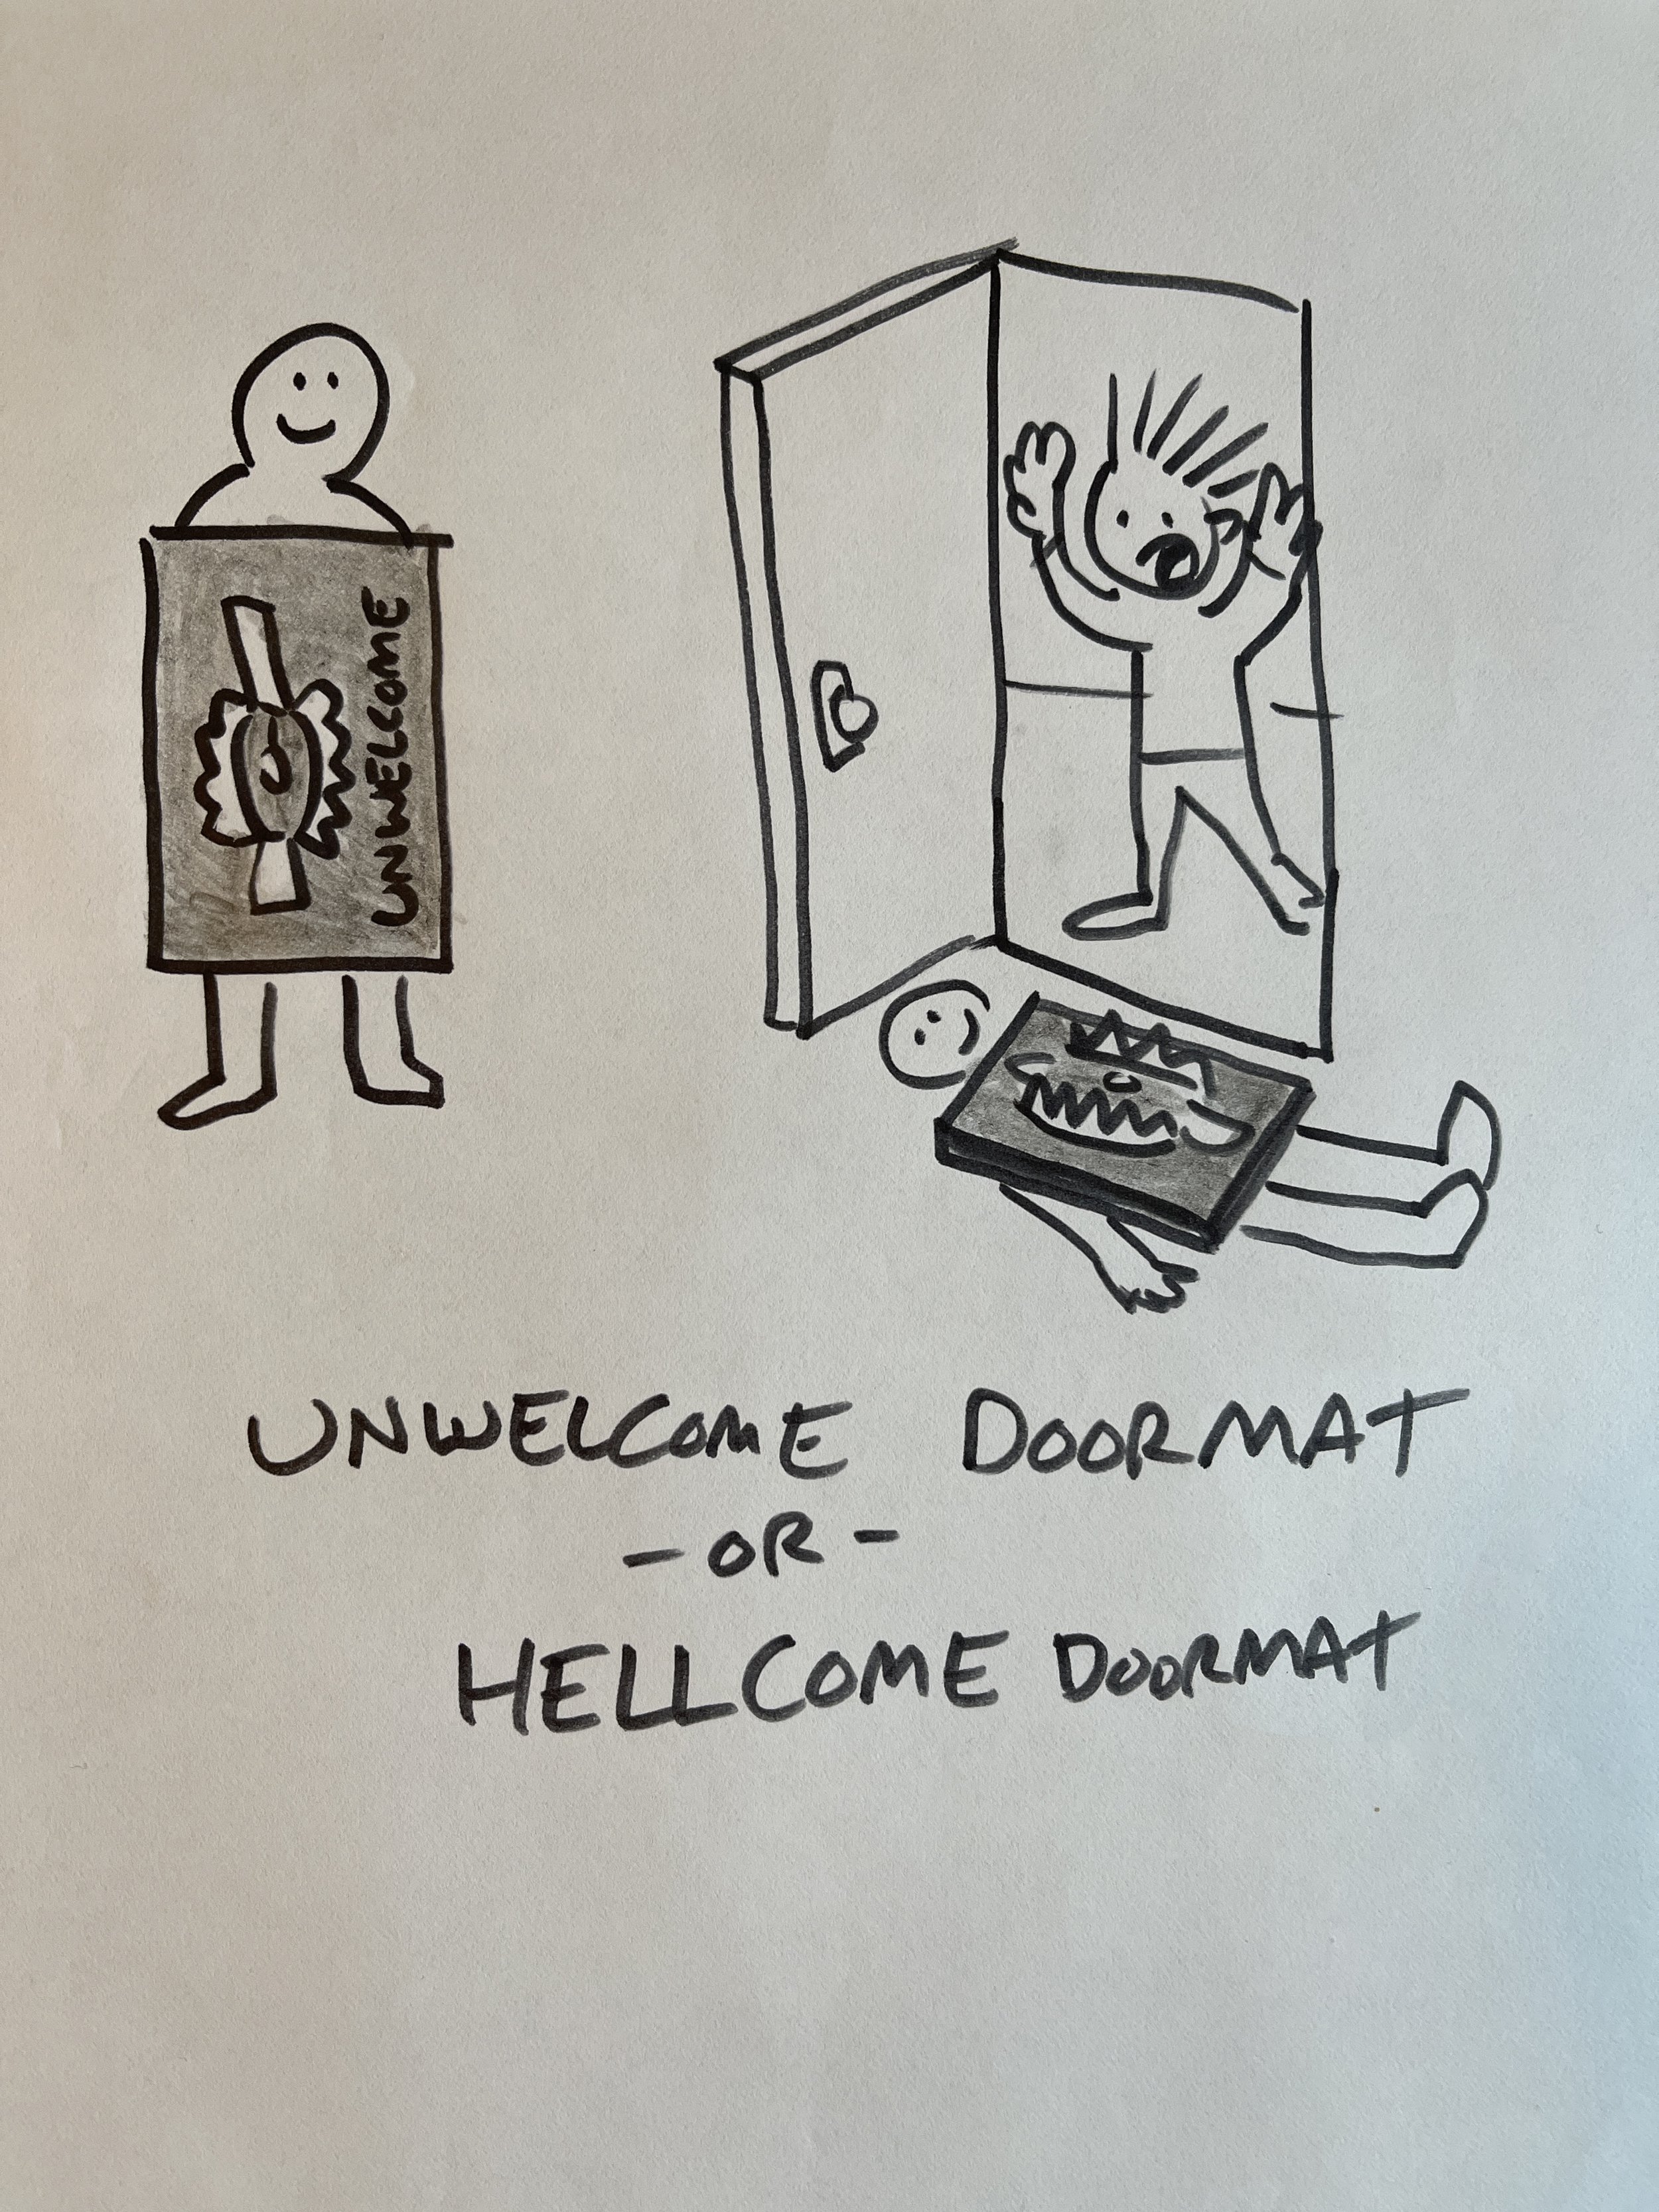 UNWELCOME
UNWELCOME DOORMAT
- OR -
HELLCOME DOORMAT